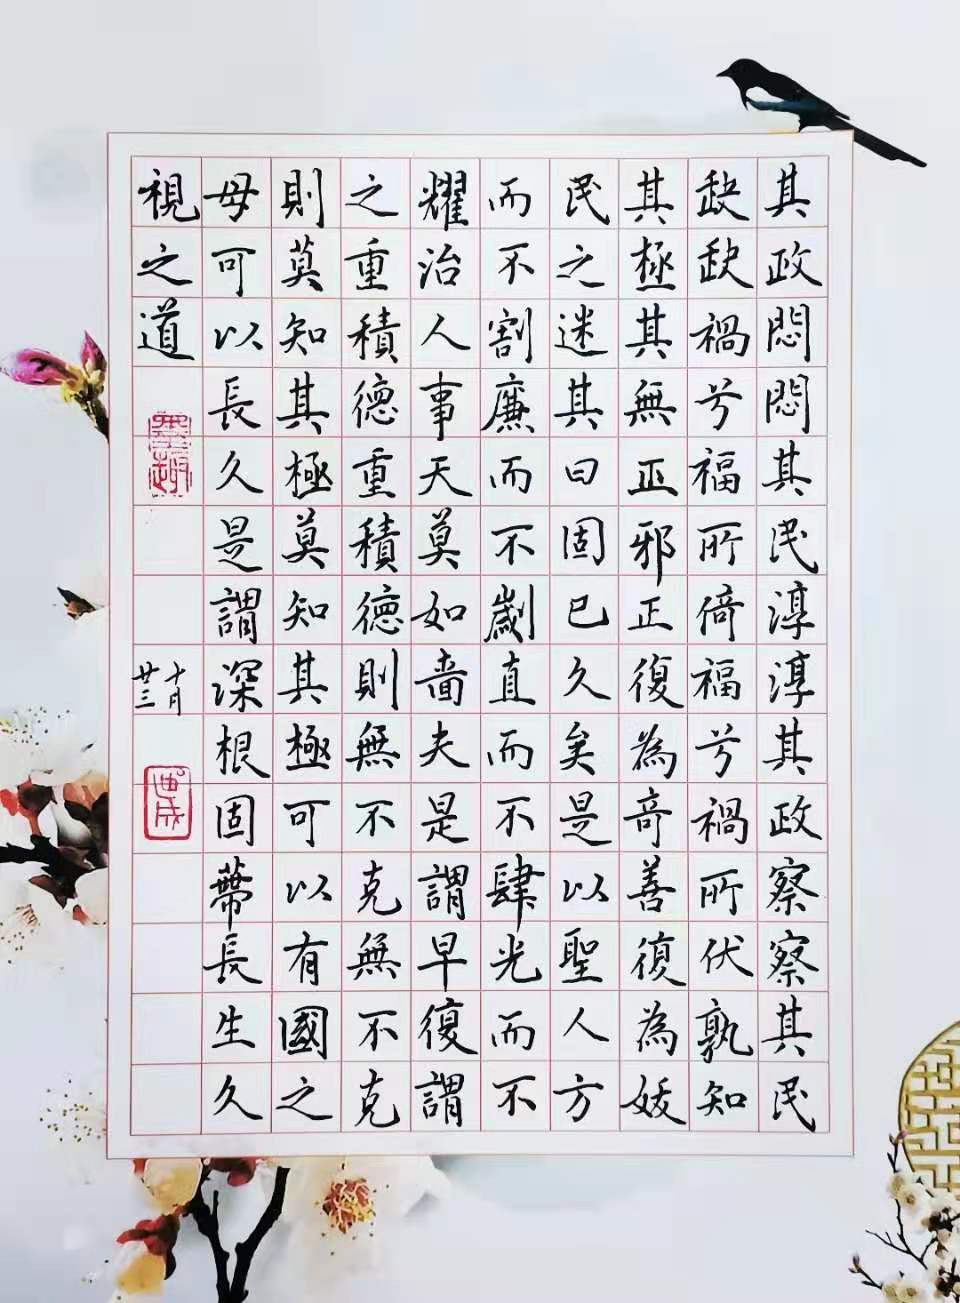 其政悶悶其民淳淳其政察察其民
缺缺禍兮福所倚福兮禍所伏孰知
其極其無正邪正復為奇善復為妖
民之迷其曰固已久矣是以聖人方
而不割廉而不劌直而不肆光而不
耀治人事天莫如嗇夫是謂早復謂
之重積德重積德則無不克無不克
則莫知其極莫知其極可以有國之
母可以長久是謂深根固蔕長生久
視之道
墨趣
十月
廿三